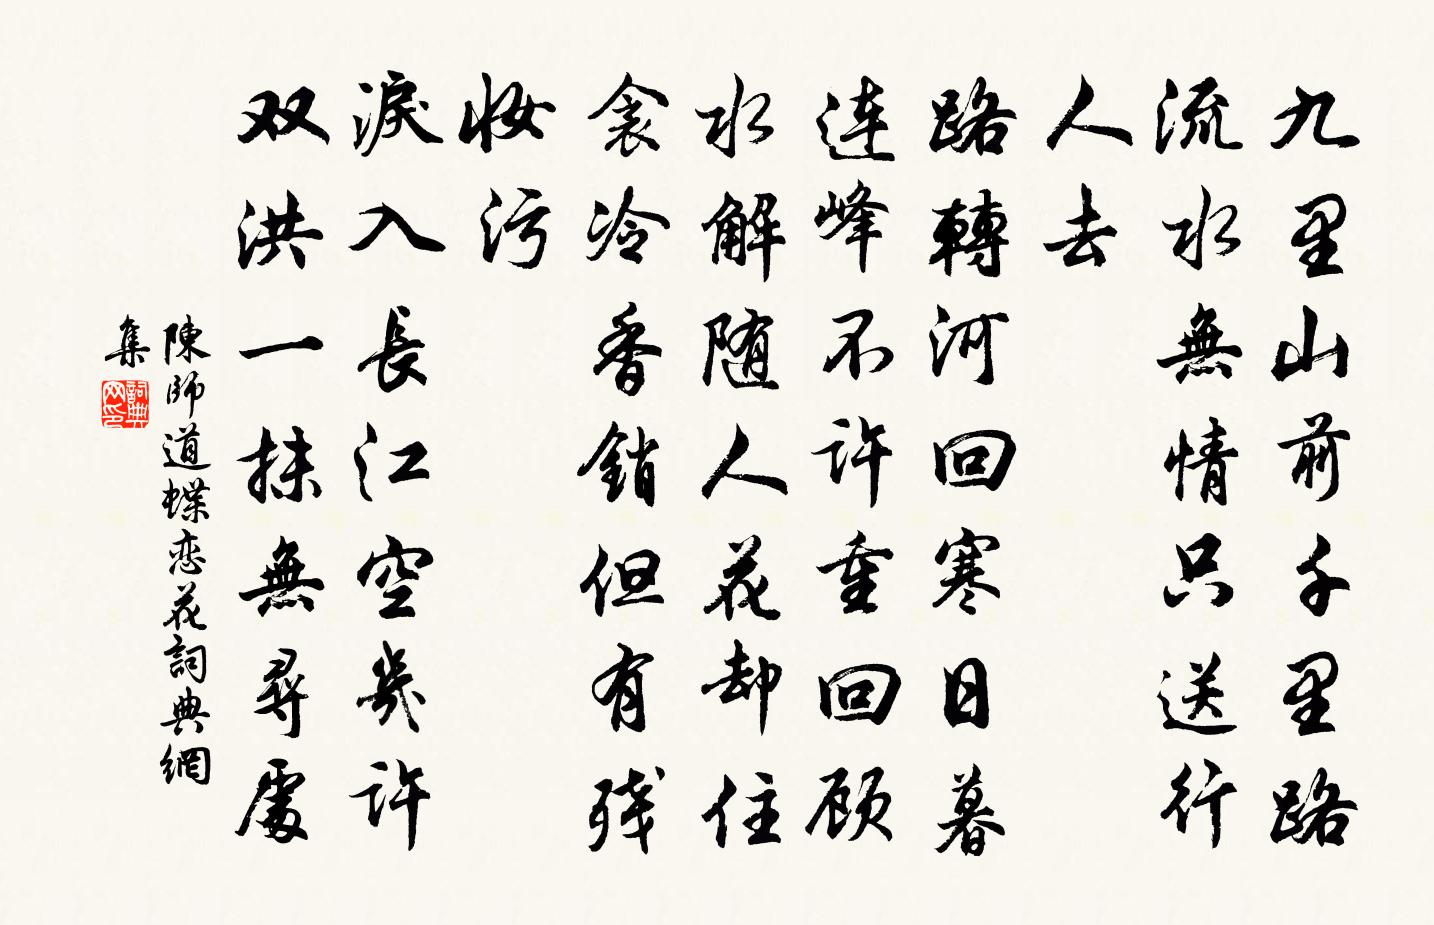 九里山前千里路
流水無情只送行
人去
路轉河回寒日暮
連峰不許重回顾
水解随人花却住
衾冷香銷但有残
妆污
淚入長江空幾許
双洪一抹無尋處
陳師道蝶恋花詞典網
集
詞典
网印